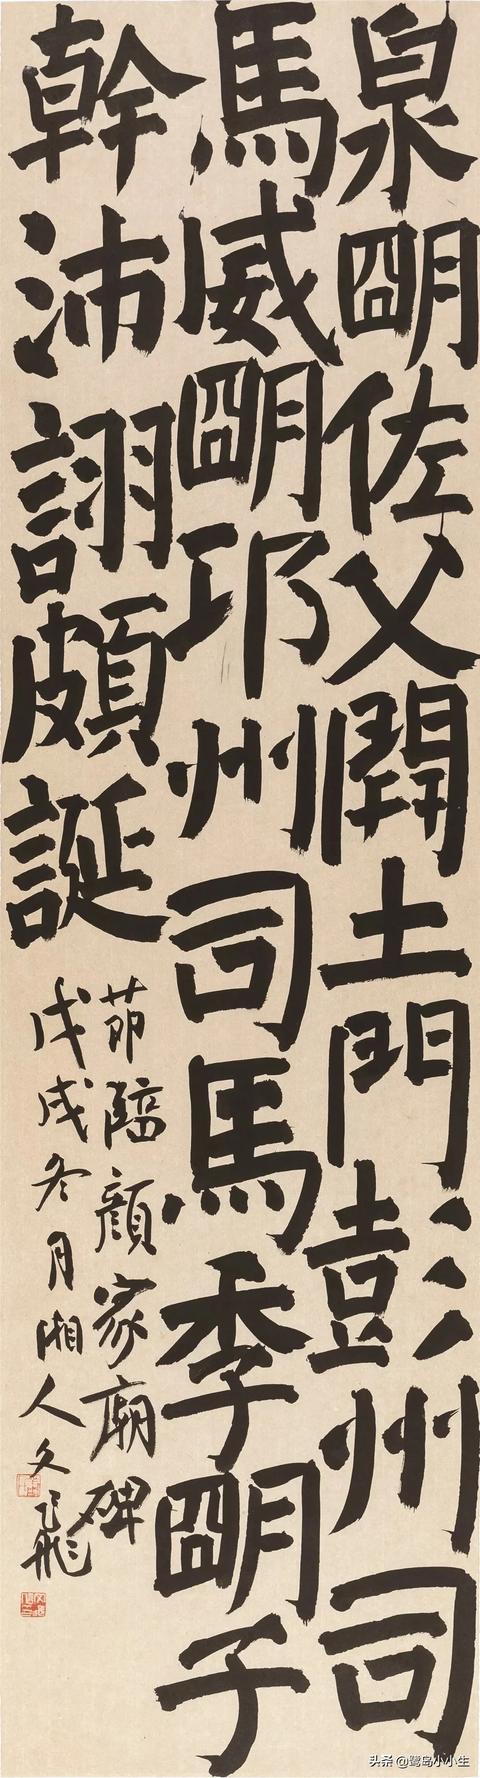 泉朙佐父開土門彭州司
馬威朙邛州司馬季朙子
幹沛詡頗誕
節臨顏家廟碑
戊戌冬月湘人文飛
头条 @鹭岛小小生